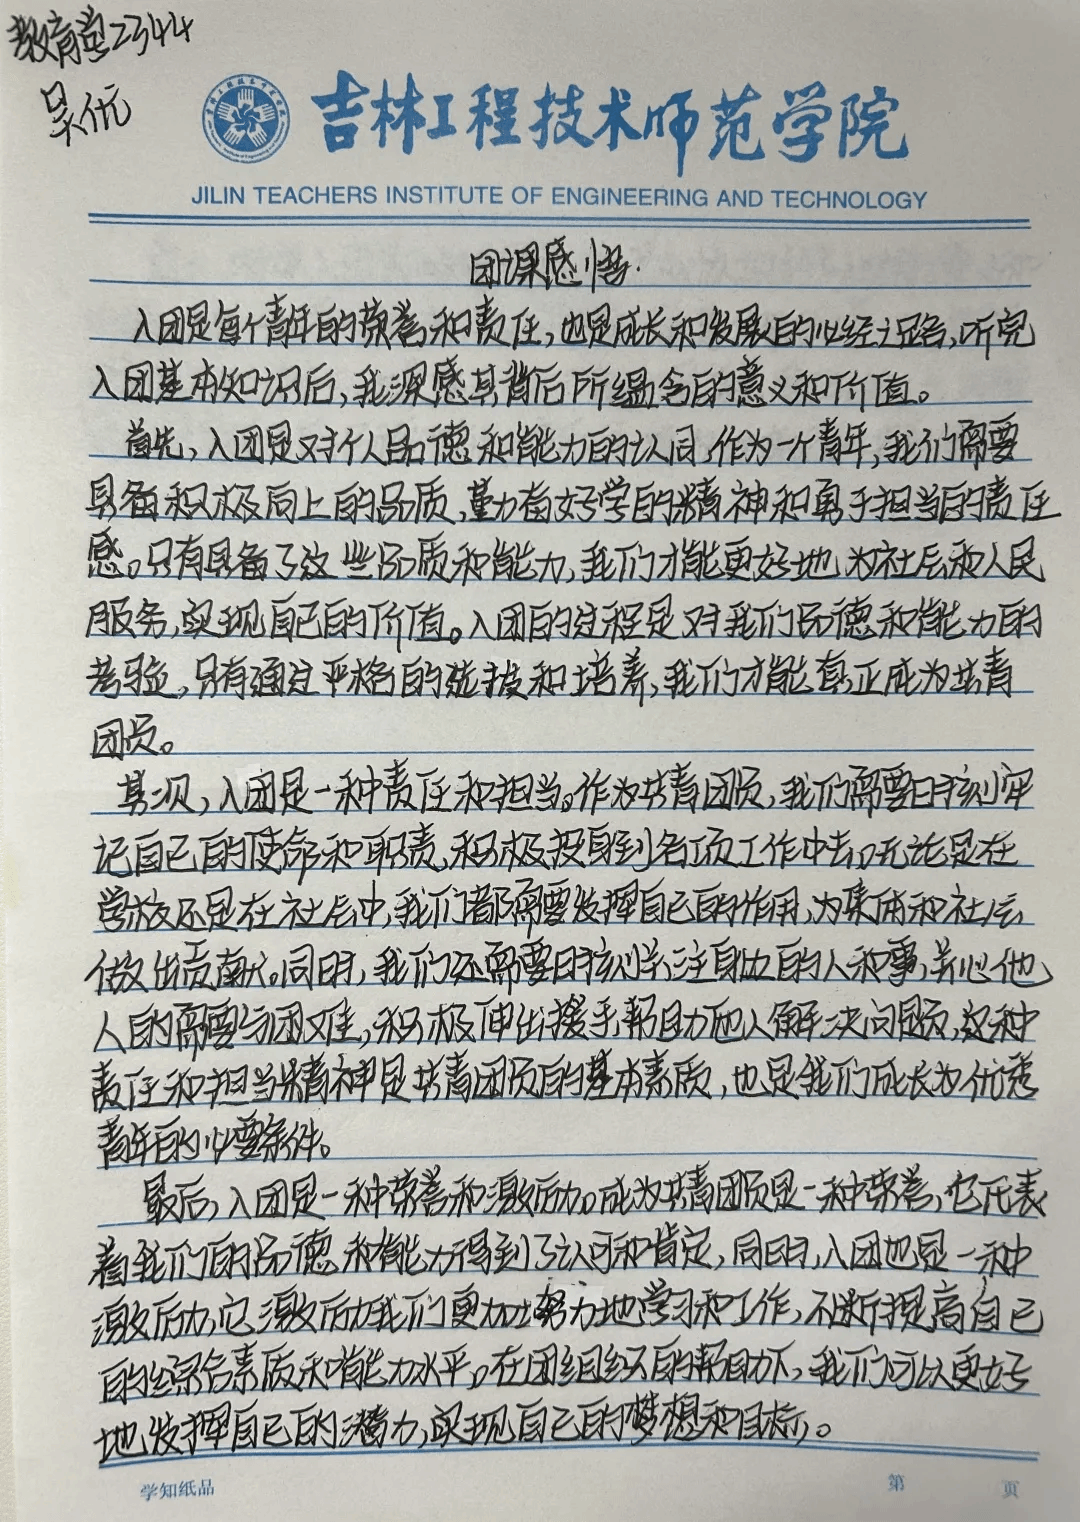 教育学2344
吴优
吉林工程技术师范学院
JILIN TEACHERS INSTITUTE OF ENGINEERING AND TECHNOLOGY
团课感悟.
入团是每个青年的荣誉和责任,也是成长和发展的必经之路,听完
入团基本知识后,我深感其背后所蕴含的意义和价值。
首先,入团是对个人品德和能力的认同,作为一个青年,我们需要
具备积极向上的品质,勤奋好学的精神和勇于担当的责任
感。只有具备了这些品质和能力,我们才能更好地为社会和人民
服务,实现自己的价值。入团的过程是对我们品德和能力的
考验,只有通过严格的选拔和培养,我们才能真正成为共青
团员。
其次,入团是一种责任和担当。作为共青团员,我们需要时刻牢
记自己的使命和职责,积极投身到各项工作中去,无论是在
学校还是在社会中,我们都需要发挥自己的作用,为集体和社会
做出贡献。同时,我们还需要时刻关注身边的人和事,关心他
人的需要与困难,积极伸出援手帮助他人解决问题,这种
责任和担当精神是共青团员的基本素质,也是我们成长为优秀
青年的必要条件。
最后,入团是一种荣誉和激励。成为共青团员是一种荣誉,它代表
着我们的品德和能力得到了认可和肯定,同时,入团也是一种
激励,它激励我们更加努力地学习和工作,不断提高自己
的综合素质和能力水平。在团组织的帮助下,我们可以更好
地发挥自己的潜力,实现自己的梦想和目标。
学知纸品
第 页